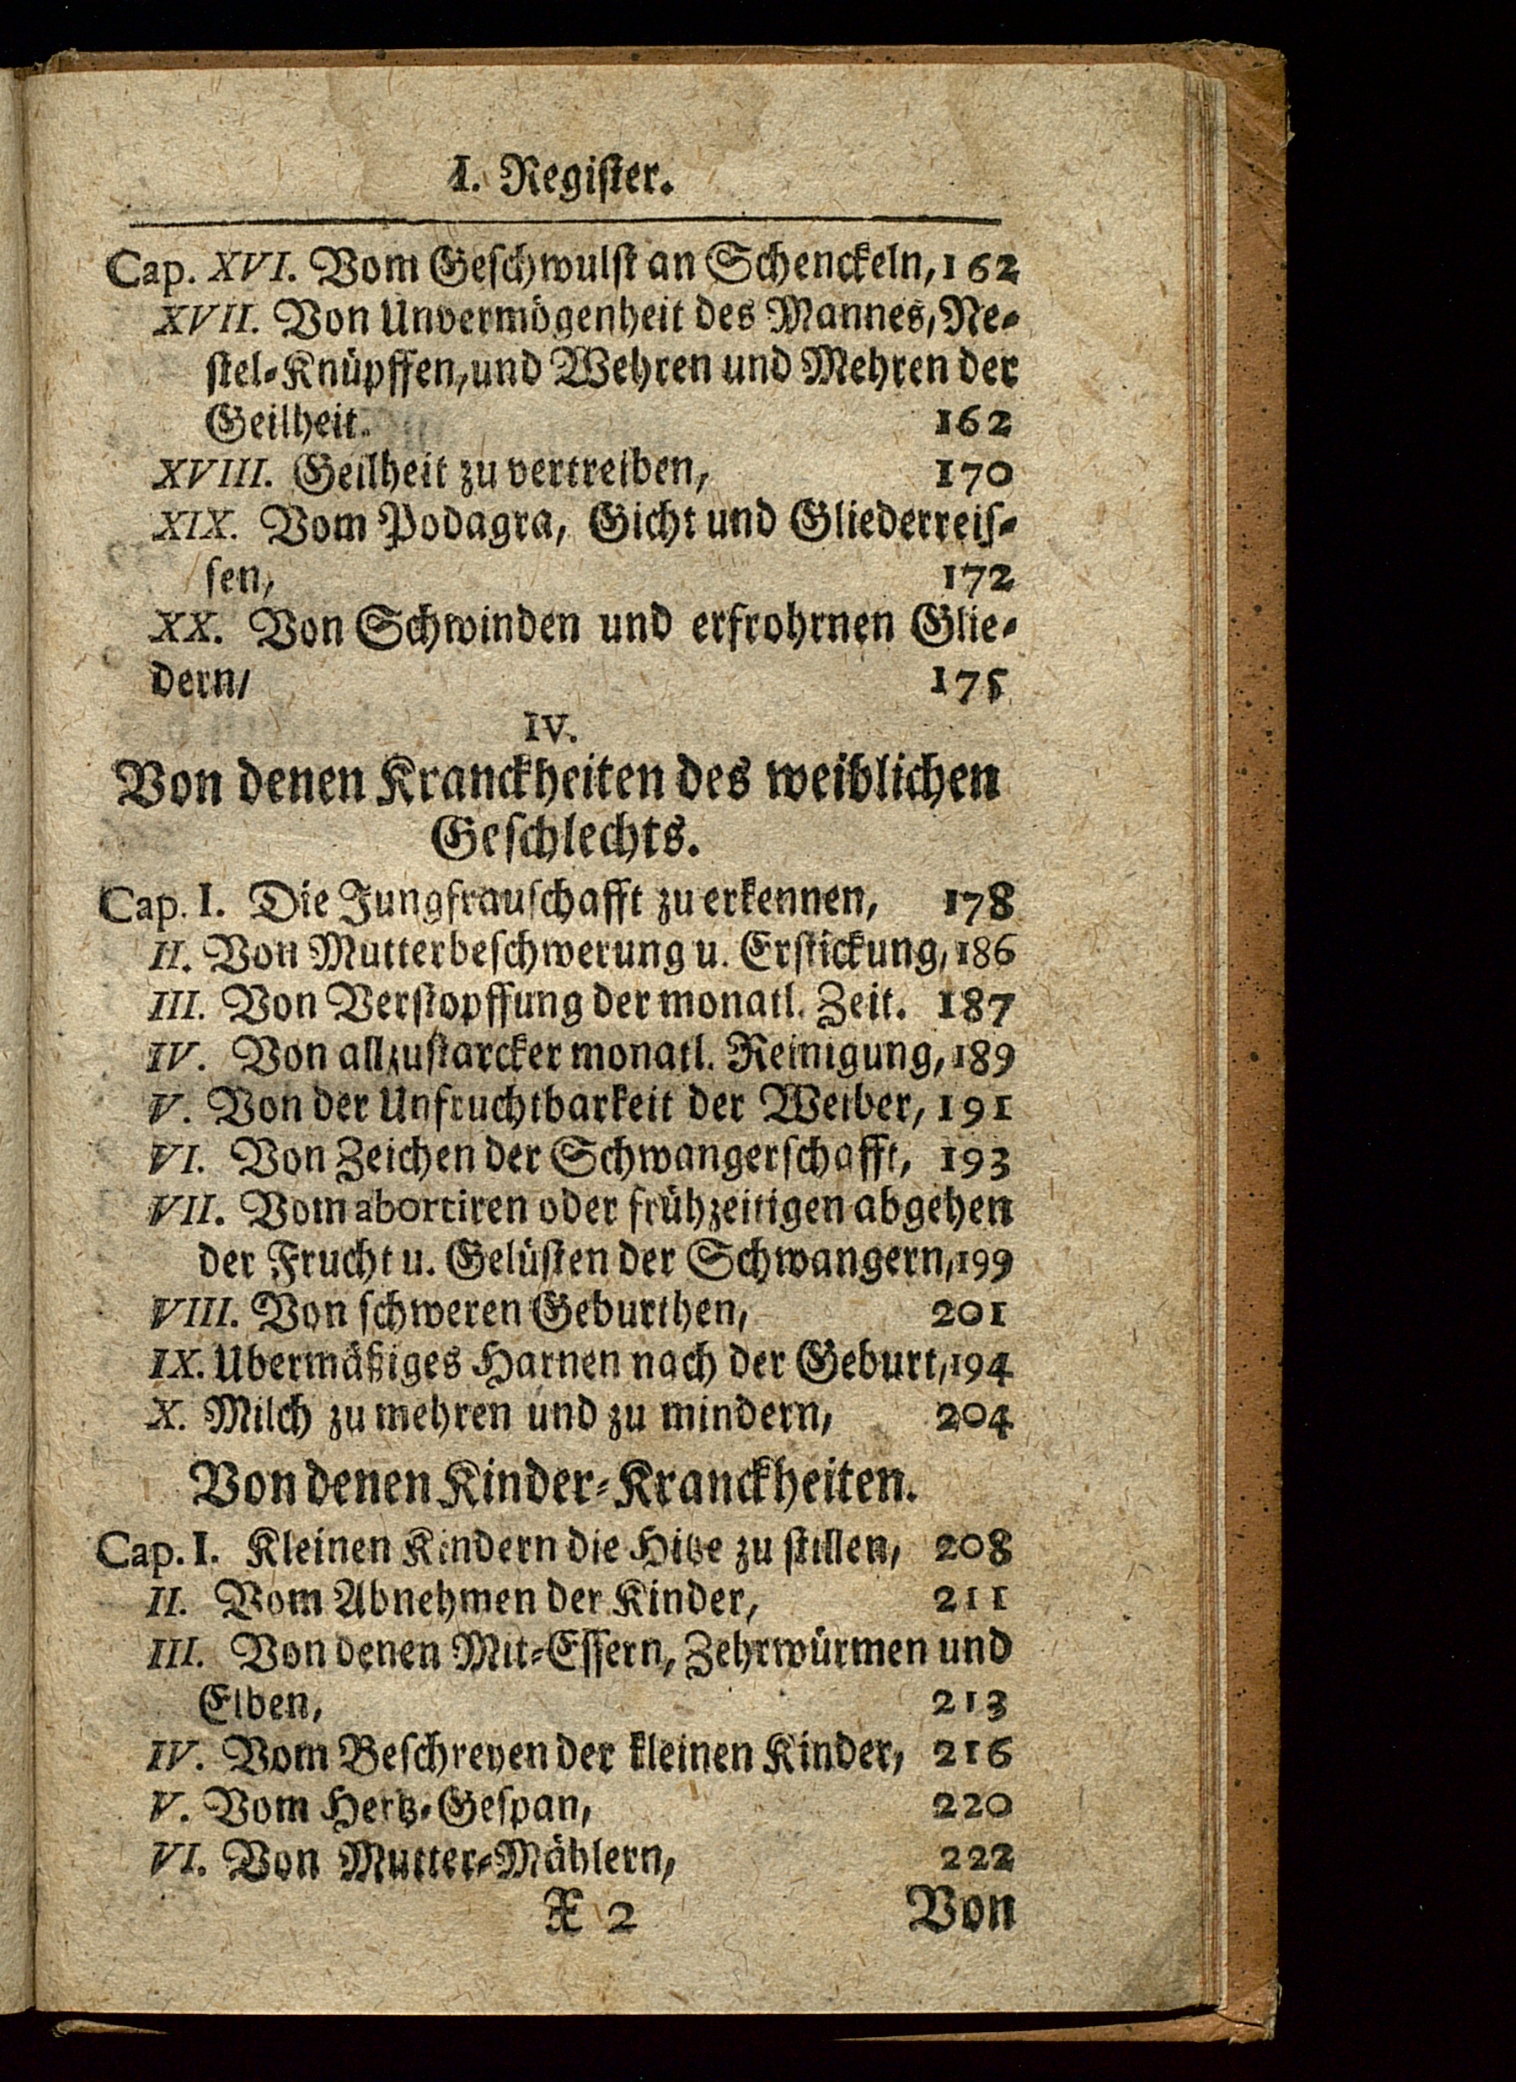 I. Register.
Cap. XVI. Vom Geschwulst an Schenckeln, 162
XVII. Von Unvermögenheit des Mannes, Ne-
stel-Knüpffen, und Wehren und Mehren der
Geilheit. 162
XVIII. Geilheit zu vertreiben, 170
XIX. Vom Podagra, Gicht und Gliederreis-
sen, 172
XX. Von Schwinden und erfrohrnen Glie-
dern/ 175
IV.
Von denen Kranckheiten des weiblichen
Geschlechts.
Cap. I. Die Jungfrauschafft zu erkennen, 178
II. Von Mutterbeschwerung u. Erstickung, 186
III. Von Verstopffung der monatl. Zeit. 187
IV. Von allzustarcker monatl. Reinigung, 189
V. Von der Unfruchtbarkeit der Weiber, 191
VI. Von Zeichen der Schwangerschafft, 193
VII. Vom abortiren oder frühzeitigen abgehen
der Frucht u. Gelüsten der Schwangern, 199
VIII. Von schweren Geburthen, 201
IX. Ubermäßiges Harnen nach der Geburt, 194
X. Milch zu mehren und zu mindern, 204
Von denen Kinder-Kranckheiten.
Cap. I. Kleinen Kindern die Hitze zu stillen, 208
II. Vom Abnehmen der Kinder, 211
III. Von denen Mit-Essern, Zehrwürmen und
Elben, 213
IV. Vom Beschreyen der kleinen Kinder, 216
V. Vom Hertz-Gespan, 220
VI. Von Mutter-Mählern, 222
X 2 Von